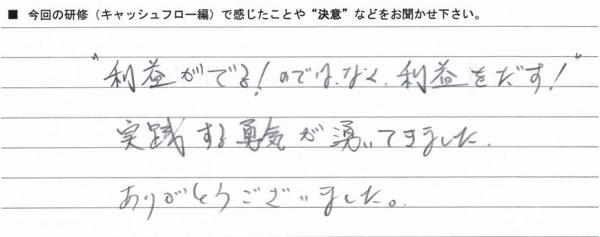 ■ 今回の研修（キャッシュフロー編）で感じたことや“決意”などをお聞かせ下さい。
“利益がでる！のではなく、利益をだす！”
実践する勇気が湧いてきました。
ありがとうございました。